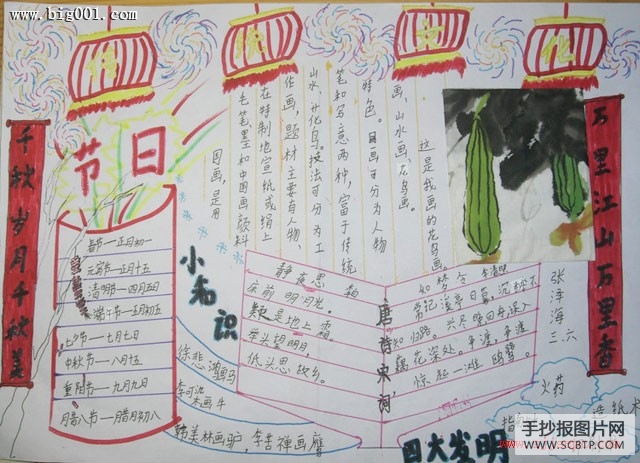 www.big001.com
传 统 文 化
节日
千秋岁月千秋美
万里江山万里春
国画，是用
毛笔、墨和中国画颜料
在特制地宣纸或绢上
作画，题材主要有人物、
山水、花鸟。技法可分为工
笔和写意两种，富于传统
特色。国画可分为人物
画，山水画，花鸟画。
这是我画的花鸟画。
春节—正月初一
元宵节—正月十五
清明节—四月五日
端午节—五月初五
七夕节—七月七日
中秋节—八月十五
重阳节—九月九日
腊八节—腊月初八
小知识
徐悲鸿画马
李可染画牛
韩美林画驴，李苦禅画鹰
唐诗宋词
静夜思
床前明月光，
疑是地上霜
举头望明月，
低头思故乡。
如梦令 李清照
常记溪亭日暮，沉醉不
知归路。兴尽晚回舟，误入
藕花深处。争渡，争渡，
惊起一滩鸥鹭。
张洋海
三六
四大发明
火药
指
造纸术
手抄报图片网
WWW.SCBTP.COM